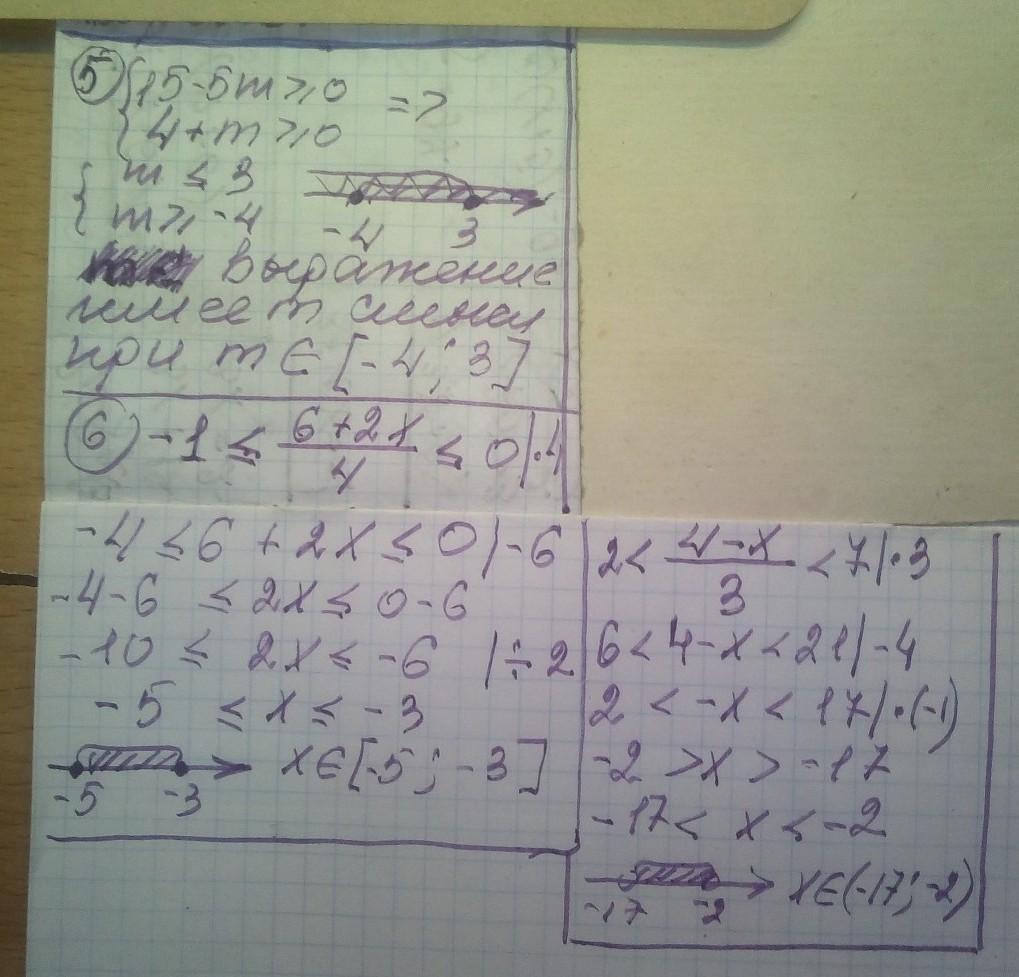 5 {15-5m⩾0 =>
{4+m⩾0
{m ≤ 3
{m⩾-4
-4 3
Выражение
имеет смысл
при m∈[-4; 3]
6 -1 ≤ (6+2x)/4 ≤ 0|·4
-4 ≤ 6 + 2x ≤ 0|-6
-4-6 ≤ 2x ≤ 0-6
-10 ≤ 2x ≤ -6 |÷2
-5 ≤ x ≤ -3
-5 -3 x∈[-5; -3]
2 < (4-x)/3 < 7|·3
6 < 4-x < 21|-4
2 < -x < 17|·(-1)
-2 > x > -17
-17 < x < -2
-17 -2 x∈(-17; -2)